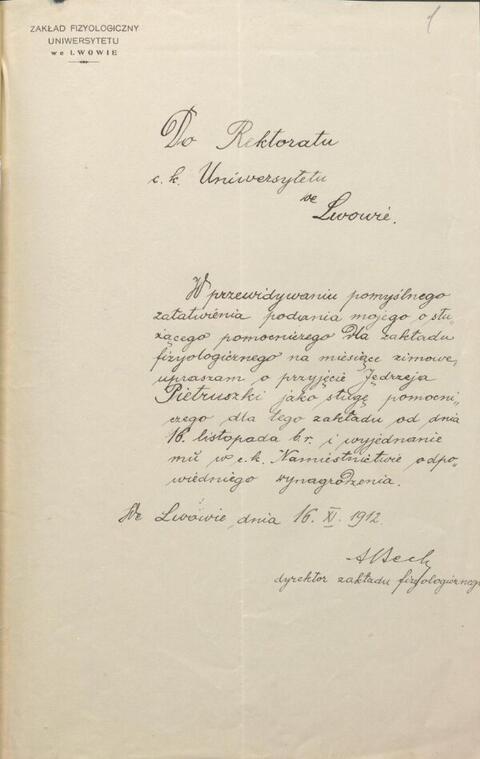 1
ZAKŁAD FIZYOLOGICZNY
UNIWERSYTETU
we LWOWIE
Do Rektoratu
c. k. Uniwersytetu
we
Lwowie.
W przewidywaniu pomyślnego
załatwienia podania mojego o słu-
żącego pomocniczego dla zakładu
fizyologicznego na miesiące zimowe,
upraszam o przyjęcie Jędrzeja
Pietruszki jako sługę pomocni-
czego dla tego zakładu od dnia
16. listopada b.r. i wyjednanie
mu w c.k. Namiestnictwie odpo-
wiedniego wynagrodzenia.
We Lwowie, dnia 16. XI. 1912.
ABeck
dyrektor zakładu fizyologicznego